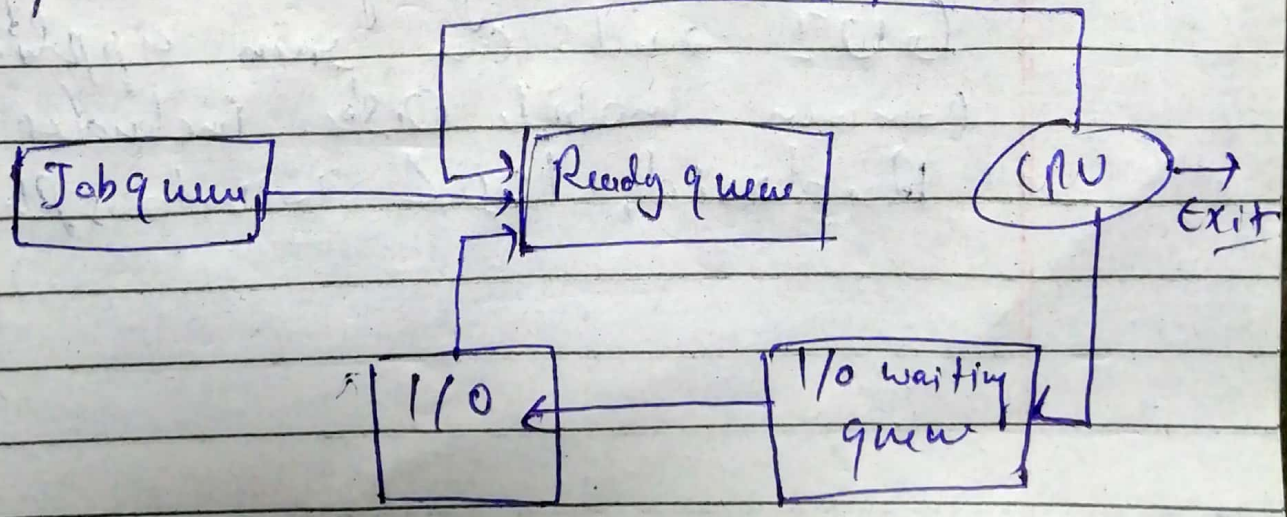 Job queue
Ready queue
CPU
Exit
I/O
I/O waiting
queue